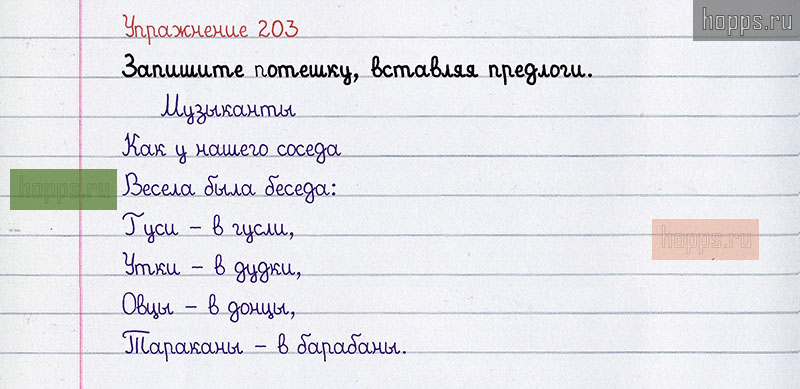 hopps.ru
Упражнение 203
Запишите потешку, вставляя предлоги.
Музыканты
Как у нашего соседа
Весела была беседа:
hopps.ru
Гуси – в гусли,
hopps.ru
Утки – в дудки,
Овцы – в донцы,
Тараканы – в барабаны.